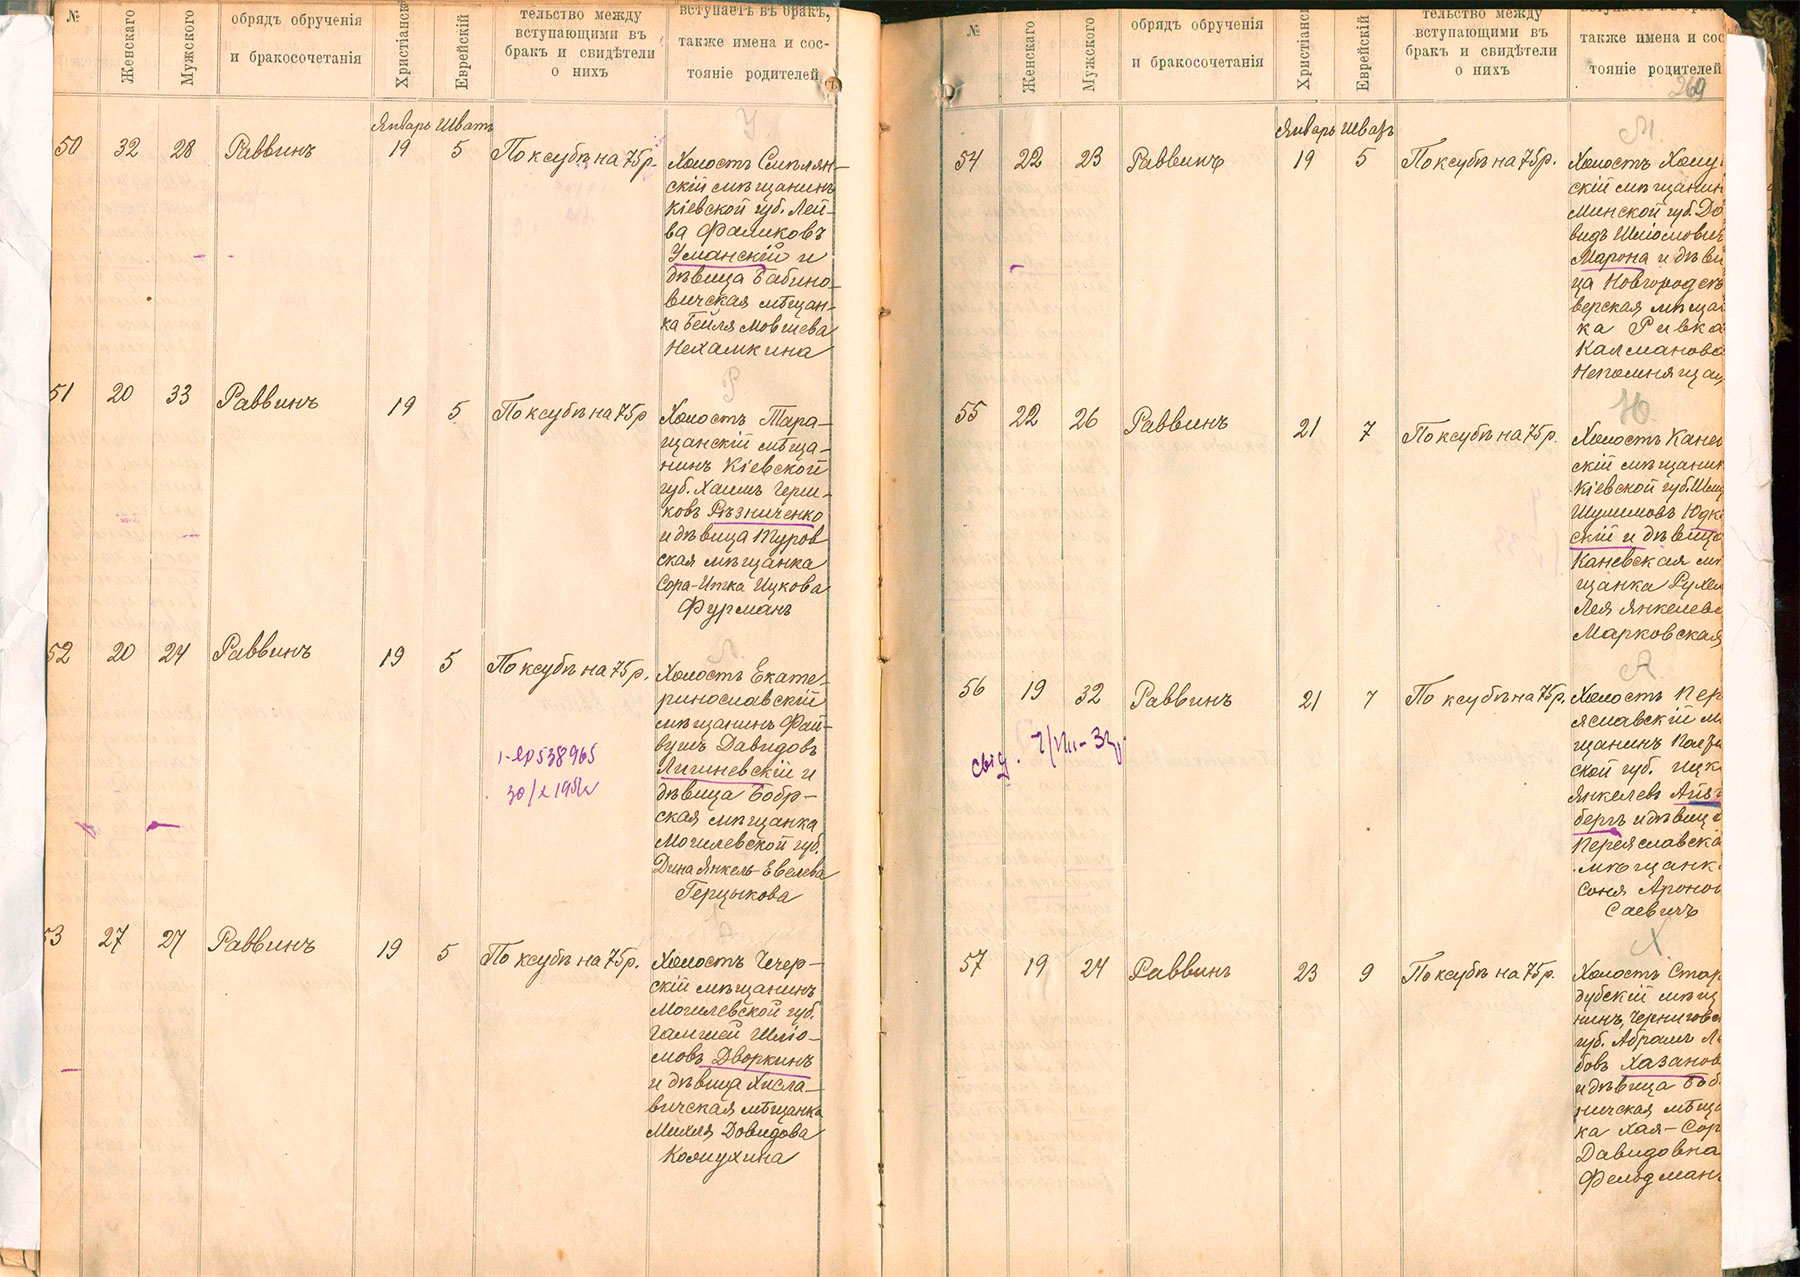 №
Женскаго
Мужского
обрядъ обрученія
и бракосочетанія
Христіанскі
Еврейскій
тельство между
вступающими въ
бракъ и свидѣтели
о нихъ
вступаетъ въ бракъ,
также имена и сос-
тояніе родителей
Январь Шватъ
У
50 32 28 Раввинъ 19 5 По ксубѣ на 75р.
Холостъ Смѣлян-
скій мѣщанинъ
Кіевской губ. Лей-
ба Фаликовъ
Уманскій и
дѣвица Бабино-
вичская мѣщан-
ка Бейля Мовшева
Нехамкина
Р
51 20 33 Раввинъ 19 5 По ксубѣ на 75р
Холостъ Тара-
щанскій мѣща-
нинъ Кіевской
губ. Хаимъ Герш-
ковъ Рѣзниченко
и дѣвица Туров
ская мѣщанка
Сора-Итка Ицкова
Фурманъ
Л
52 20 24 Раввинъ 19 5 По ксубѣ на 75р.
Холостъ Екате-
ринославскій
мѣщанинъ Фай-
вушъ Давидовъ
Лигиневскій и
дѣвица Бобр-
ская мѣщанка
Могилевской губ.
Дина Янкель-Евелева
Герцыкова
538965
Д
53 27 27 Раввинъ 19 5 По ксубѣ на 75р.
Холостъ Чечер-
скій мѣщанинъ
Могилевской губ.
Гамшей Шлио-
мовъ Дворкинъ
и дѣвица Хисла-
вичская мѣщанка
Михля Довидова
Колпухина
№
Женскаго
Мужского
обрядъ обрученія
и бракосочетанія
Христіанскі
Еврейскій
тельство между
вступающими въ
бракъ и свидѣтели
о нихъ
вступаетъ въ брак
также имена и сос
тояніе родителей
269
Январь Шватъ
М
54 22 23 Раввинъ 19 5 По ксубѣ на 75р.
Холостъ Холу
скій мѣщанин
Минской губ. До
видъ Шліомович
Марона и дѣви
ца Новгородсѣ
верская мѣща
ка Ривка
Калманова
Непомнящая
Ю
55 22 26 Раввинъ 21 7 По ксубѣ на 75р.
Холостъ Канев
скій мѣщанин
Кіевской губ. Шлі
Шулимовъ Юдк
скій и дѣвица
Каневская мѣ
щанка Рухел
Лея Янкелева
Марковская
А
56 19 32 Раввинъ 21 7 По ксубѣ на 75р.
Холостъ Пер
яславскій м
щанинъ Полта
ской губ. Ицк
Янкелевъ Айз
бергъ и дѣвица
Переяславска
мѣщанк
Соня Аронов
Саевичъ
свид. 7/VIII-33г
Х
57 19 24 Раввинъ 23 9 По ксубѣ на 75р.
Холостъ Старо
дубскій мѣщ
нинъ, Черниговс
губ. Абрамъ Л
бовъ Хазанов
и дѣвица Баб
ничская мѣща
ка Хая-Сор
Давидовна
Фельдман